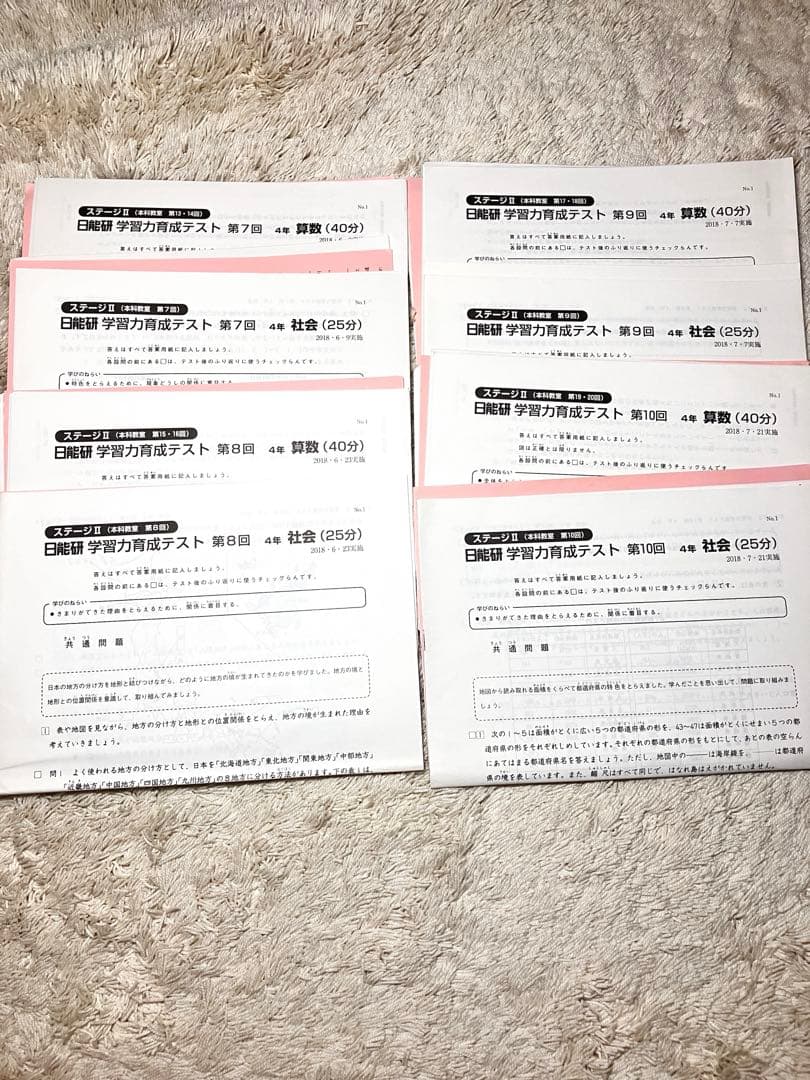 No.1
ステージⅡ（本科教室 第13・14回）
日能研 学習力育成テスト 第7回 4年 算数（40分）
答えはすべて答案用紙に記入しましょう。
No.1
ステージⅡ（本科教室 第7回）
日能研 学習力育成テスト 第7回 4年 社会（25分）
2018・6・9実施
答えはすべて答案用紙に記入しましょう。
各設問の前にある□は、テスト後のふり返りに使うチェックらんです。
学びのねらい
No.1
ステージⅡ（本科教室 第15・16回）
日能研 学習力育成テスト 第8回 4年 算数（40分）
2018・6・23実施
答えはすべて答案用紙に記入しましょう。
No.1
ステージⅡ（本科教室 第8回）
日能研 学習力育成テスト 第8回 4年 社会（25分）
2018・6・23実施
答えはすべて答案用紙に記入しましょう。
各設問の前にある□は、テスト後のふり返りに使うチェックらんです。
学びのねらい
●きまりができた理由をとらえるために、関係に着目する。
共通問題
日本の地方の分け方を地形と結びつけながら、どのように地方の境が生まれてきたのかを学びました。地方の境と
地形との位置関係を意識して、取り組んでみましょう。
1 表や地図を見ながら、地方の分け方と地形との位置関係をとらえ、地方の境が生まれた理由を
考えていきましょう。
□ 問1 よく使われる地方の分け方として、日本を「北海道地方」「東北地方」「関東地方」「中部地方」
「近畿地方」「中国地方」「四国地方」「九州地方」の8地方に分ける方法があります。下の表1は、
No.1
ステージⅡ（本科教室 第17・18回）
日能研 学習力育成テスト 第9回 4年 算数（40分）
2018・7・7実施
答えはすべて答案用紙に記入しましょう。
各設問の前にある□は、テスト後のふり返りに使うチェックらんです。
学びのねらい
No.1
ステージⅡ（本科教室 第9回）
日能研 学習力育成テスト 第9回 4年 社会（25分）
2018・7・7実施
答えはすべて答案用紙に記入しましょう。
No.1
ステージⅡ（本科教室 第19・20回）
日能研 学習力育成テスト 第10回 4年 算数（40分）
2018・7・21実施
答えはすべて答案用紙に記入しましょう。
図は正確とは限りません。
各設問の前にある□は、テスト後のふり返りに使うチェックらんです
学びのねらい
No.1
ステージⅡ（本科教室 第10回）
日能研 学習力育成テスト 第10回 4年 社会（25分）
2018・7・21実施
答えはすべて答案用紙に記入しましょう。
各設問の前にある□は、テスト後のふり返りに使うチェックらんです。
学びのねらい
●きまりができた理由をとらえるために、関係に着目する。
共通問題
地図から読み取れる面積をくらべて都道府県の特色をとらえました。学んだことを思い出して、問題に取り組みま
しょう。
□1 次の1～5は面積がとくに広い5つの都道府県の形を、43～47は面積がとくにせまい5つの都
道府県の形をそれぞれしめしています。それぞれの都道府県の形をもとにして、あとの表の空らん
にあてはまる都道府県名を答えましょう。ただし、地図中の――は海岸線を、-----は都道府
県の境を表しています。また、縮尺はすべて同じで、はなれ島はえがかれていません。